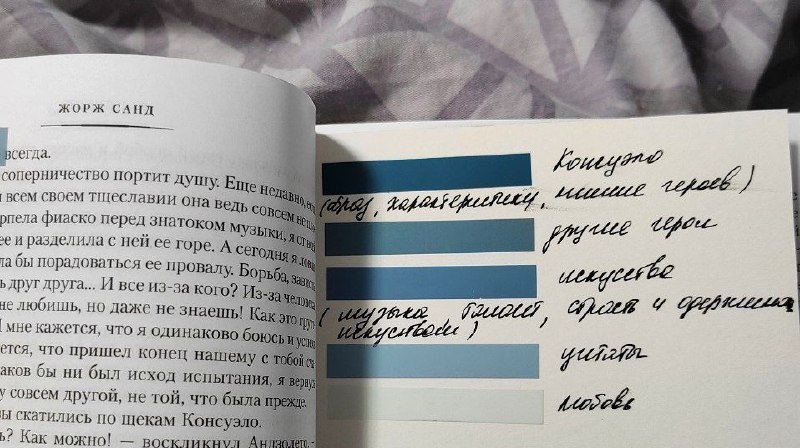 ЖОРЖ САНД
всегда.
соперничество портит душу. Еще недавно,
всем своем тщеславии она ведь совсем не
рпела фиаско перед знатоком музыки, я
ее и разделила с ней ее горе. А сегодня я
ла бы порадоваться ее провалу. Борьба,
ь друг друга... И все из-за кого? Из-за
не любишь, но даже не знаешь! Как это
И мне кажется, что я одинаково боюсь и
ется, что пришел конец нашему с тобой
аков бы ни был исход испытания, я
у совсем другой, не той, что была прежде.
зы скатились по щекам Консуэло.
ь? Как можно! — воскликнул Андзолето.
Консуэло
(образ, характеристику, мнение героев)
другие герои
искусство
(музыка талант, страсть и
искусством)
цитаты
любовь